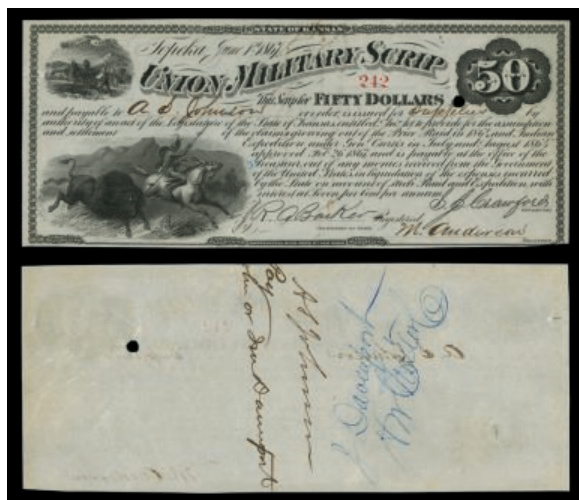 STATE OF KANSAS
Topeka, June 1st 1867
UNION MILITARY SCRIP
242
50
This Scrip for FIFTY DOLLARS
and payable to A S Johnson or order is issued for Supplies by
authority of an act of the Legislature of the State of Kansas, entitled "An Act to provide for the assumption
and settlement of the claims growing out of the Price Raid in 1864, and Indian
Expedition under Gen. Curtis in July and August 1864"
approved Feb. 26, 1867 and is payable at the office of the
Treasurer out of any moneys received from the Government
of the United States in liquidation of the expenses incurred
by the State on account of said Raid and Expedition, with
interest at seven per cent per annum.
J R A Barker
S. J. Crawford
Registered
M. Anderson
A S Johnson
Pay
John or Davenport
J Davenport